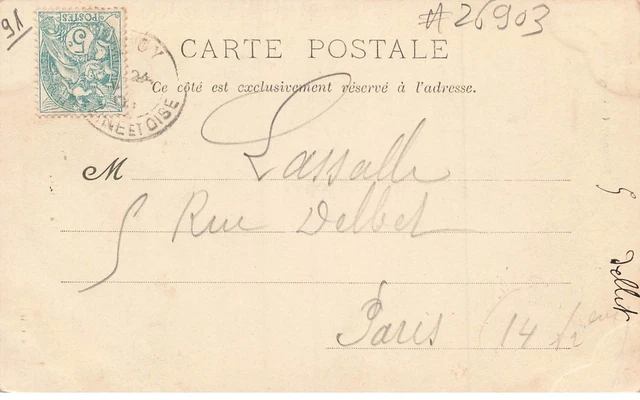 91
#26903
POSTES
5
CARTE POSTALE
Ce côté est exclusivement réservé à l'adresse.
NE ET OISE
M Lassalle
5 Rue Delbet
Paris (14
5
Dellit